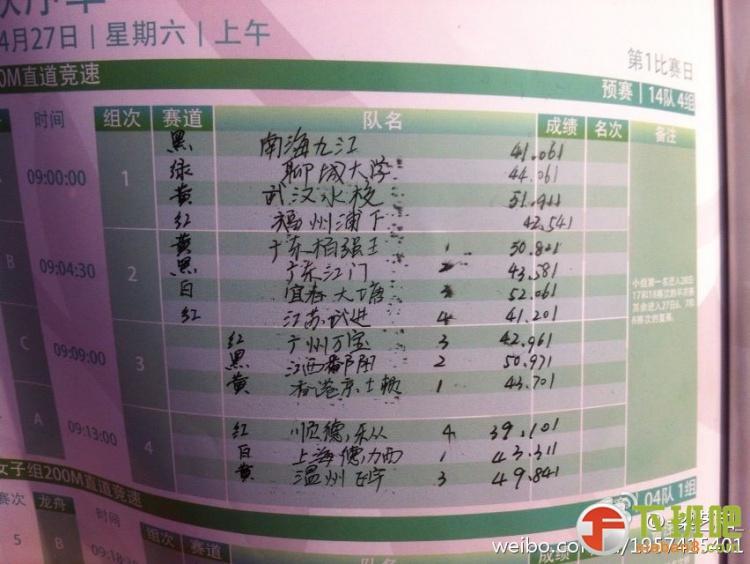 4月27日 | 星期六 | 上午
第1比赛日
00M直道竞速
预赛 | 14队 4组
时间 组次 赛道 队名 成绩 名次 备注
黑 南海九江 41.061
09:00:00 1 绿 聊城大学 44.061
黄 武汉水校 51.911
红 福州浦下 42.541
黄 广东柏强王 1 50.821
B 09:04:30 2 黑 广东江门 2 43.581
白 宜春大塘 3 52.061
红 江苏武进 4 41.201
红 广州万宝 3 42.961
09:09:00 3 黑 江西鄱阳 2 50.971
黄 香港 1 43.701
A 09:13:00 4 红 顺德乐从 4 39.101
白 上海德力西 1 43.311
黄 温州 3 49.841
女子组200M直道竞速
04队 1组
赛次 龙舟 时间 组次 赛道 队名 成绩
5 B 09:18:30
下班吧
xiaban8.com
weibo.com/u/1957415401